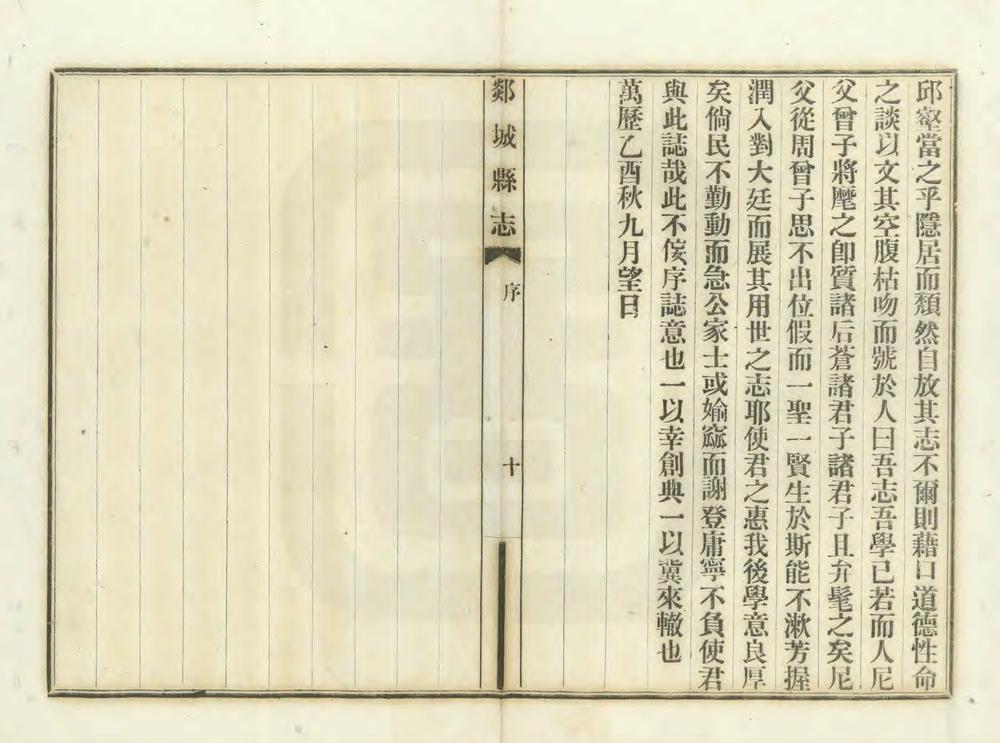 邱壑當之乎隱居而頹然自放其志不爾則藉口道德性命
之談以文其空腹枯吻而號於人曰吾志吾學已若而人尼
父曾子將麾之卽質諸后蒼諸君子諸君子且弁髦之矣尼
父從周曾子思不出位假而一聖一賢生於斯能不漱芳握
潤入對大廷而展其用世之志耶使君之惠我後學意良厚
矣倘民不勤動而急公家士或媮窳而謝登庸寧不負使君
與此誌哉此不佞序誌意也一以幸創典一以冀來轍也
萬歷乙酉秋九月望日
郯城縣志
序
十